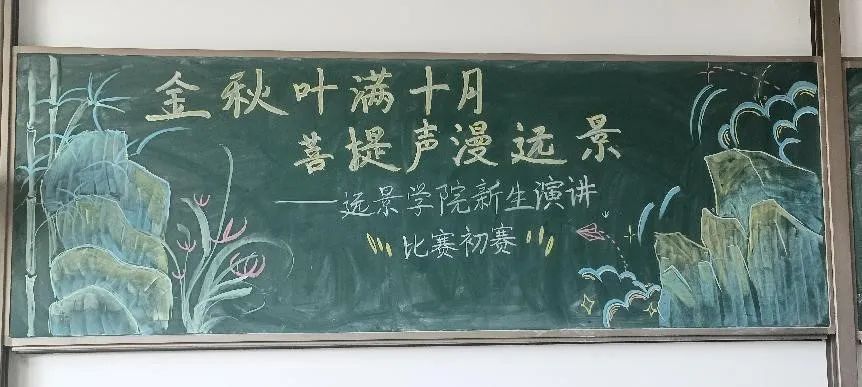 金秋叶满十月
菩提声漫远景
——远景学院新生演讲
比赛初赛